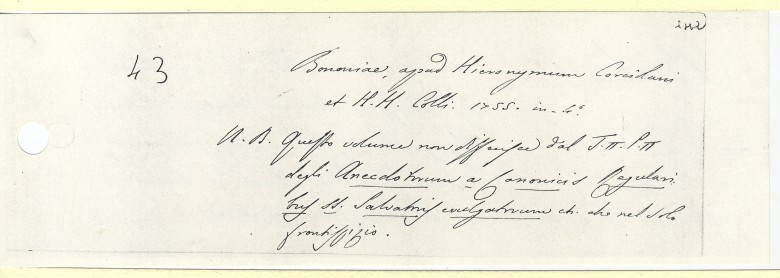 242
43
Bononiae, apud Hieronymum Corciolani
et H.H. Colli. 1755. in-4.º
N. B. Questo volume non differisce dal T.II. P.II
degli Anecdotorum a Canonicis Regulari-
bus SS. Salvatoris evulgatorum etc. che nel solo
frontispizio.